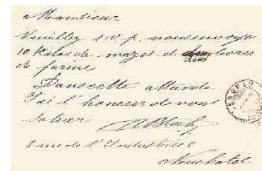 a Monsieur
Veuillez s.v.p. nous envoyer
10 Kilos de de livres
de farine
Dans cette attente
J'ai l'honneur de vous
saluer
8 rue de l'Industrie 8
Neuchatel